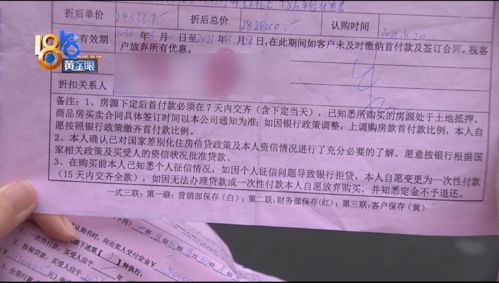 折后单价
24333.7
折后总价
2828000
认购时间
2021.8.20
有效期
2021年8月
日至2021年8月
日,在此期间如客户未及时缴纳首付款及签订合同,视客
户放弃所有优惠。
折扣关系人
备注:1、房源下定后首付款必须在7天内交齐(含下定当天),已知悉所购买的房源处于土地抵押,
商品房买卖合同具体签订时间以本公司通知为准;如因银行政策调整,上调购房首付款比例,本人自
愿按照银行政策缴齐首付款比例。
2、本人确认已对国家差别化住房信贷政策及本人资信情况进行了充分必要的了解,愿意按银行根据国
家相关政策及买受人的资信状况批准贷款。
3、在购买前本人已知悉个人征信情况,如因个人征信问题导致银行拒贷,本人自愿变更为一次性付款
(15天内交齐全款),如因无法办理贷款或一次性付款本人自愿放弃购买,并知悉定金不予退还。
一式三联:第一联:营销部保存(白);第二联:财务部保存(红);第三联:客户保存(黄)
1818
黄金眼
种执行: